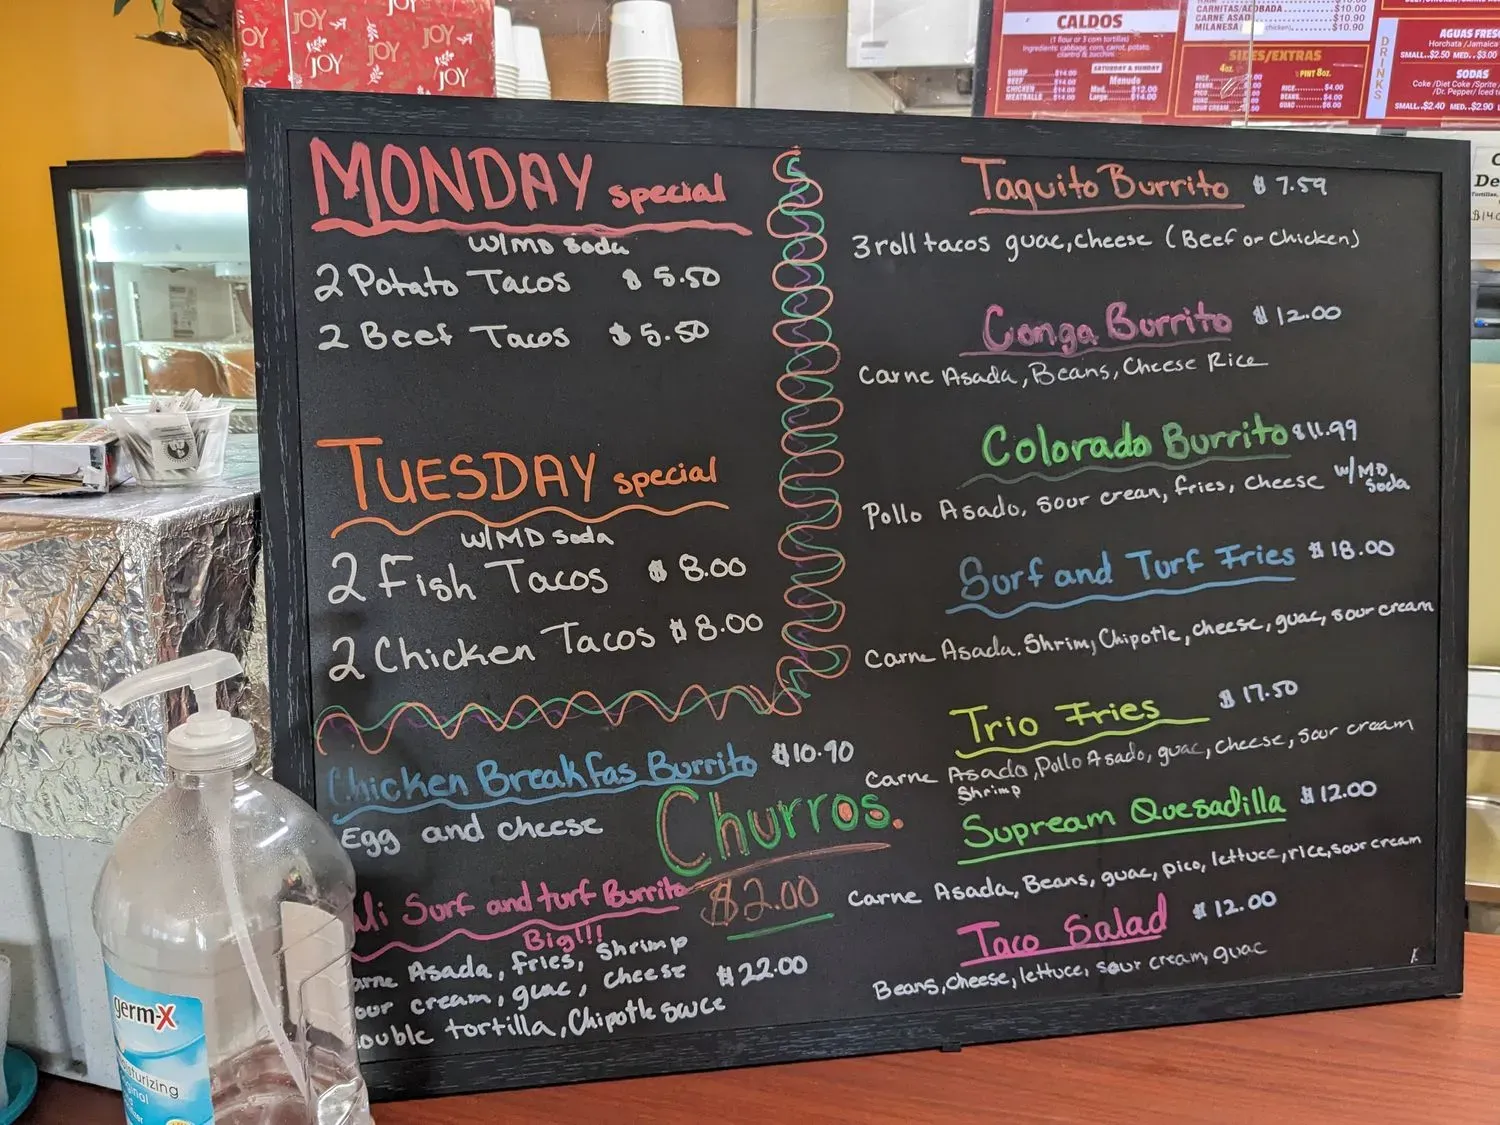 JOY JOY JOY
JOY JOY
CALDOS
(1 flour or 3 corn tortillas)
Ingredients: cabbage, corn, carrot, potato,
cilantro & zucchini.
SHRIMP $14.00
BEEF $14.00
CHICKEN $14.00
MEATBALLS $14.00
SATURDAY & SUNDAY
Menudo
Med. $12.00
Large $14.00
CARNITAS/ADOBADA $10.00
CARNE ASADA $10.90
MILANESA (chicken) $10.90
SIDES/EXTRAS
4oz.
RICE
BEANS
PICO
GUAC
SOUR CREAM
PINT 8oz.
RICE $4.00
BEANS $4.00
GUAC $6.00
DRINKS
AGUAS FRES
Horchata /Jamaica
SMALL..$2.50 MED..$3.00
SODAS
Coke /Diet Coke /Sprite
/Dr. Pepper/ Iced t
SMALL..$2.40 MED..$2.90 L
MONDAY special
w/MD soda
2 Potato Tacos $5.50
2 Beef Tacos $5.50
TUESDAY special
w/MD soda
2 Fish Tacos $8.00
2 Chicken Tacos $8.00
Chicken Breakfas Burrito $10.90
Egg and cheese
Churros.
$2.00
ali Surf and turf Burrito
Big!!!
arne Asada, fries, shrimp
our cream, guac, cheese $22.00
ouble tortilla, Chipotle sauce
Taquito Burrito $7.59
3 roll tacos guac, cheese (Beef or Chicken)
Conga Burrito $12.00
Carne Asada, Beans, Cheese Rice
Colorado Burrito $11.99
Pollo Asado, sour crean, fries, cheese w/MD
soda
Surf and Turf Fries $18.00
Carne Asada. Shrim, Chipotle, cheese, guac, sour cream
Trio Fries $17.50
Carne Asada, Pollo Asado, guac, cheese, sour cream
Shrimp
Supream Quesadilla $12.00
Carne Asada, Beans, guac, pico, lettuce, rice, sour cream
Taco Salad $12.00
Beans, cheese, lettuce, sour cream, guac
germ-X